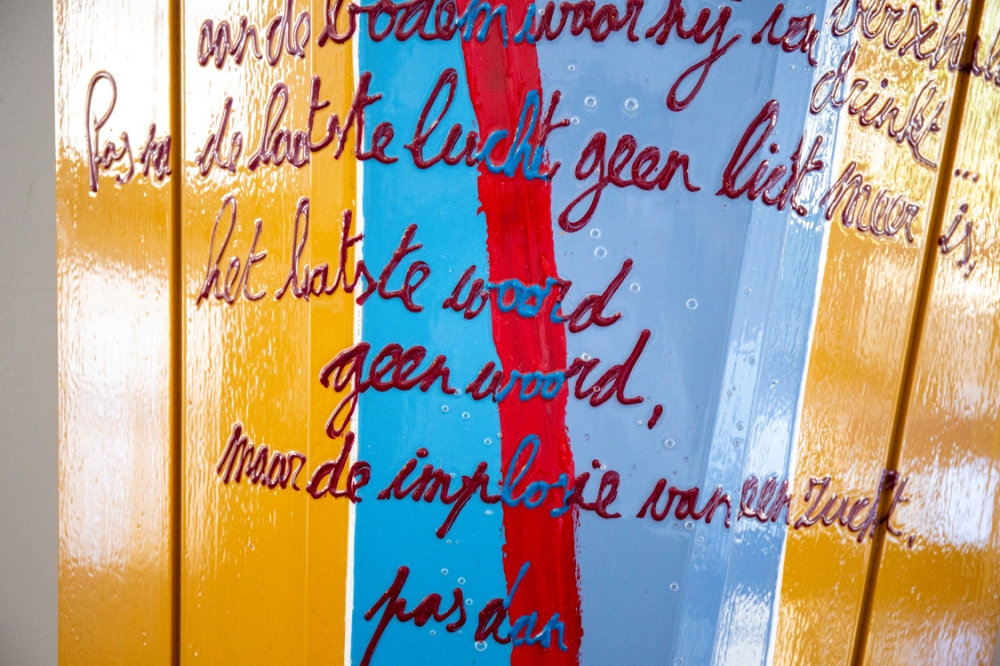 aan de bodem waar hij in
drinkt...
Pas na de laatste lucht, geen licht meer is,
het laatste woord
geen woord,
maar de implosie van een zucht,
pas dan